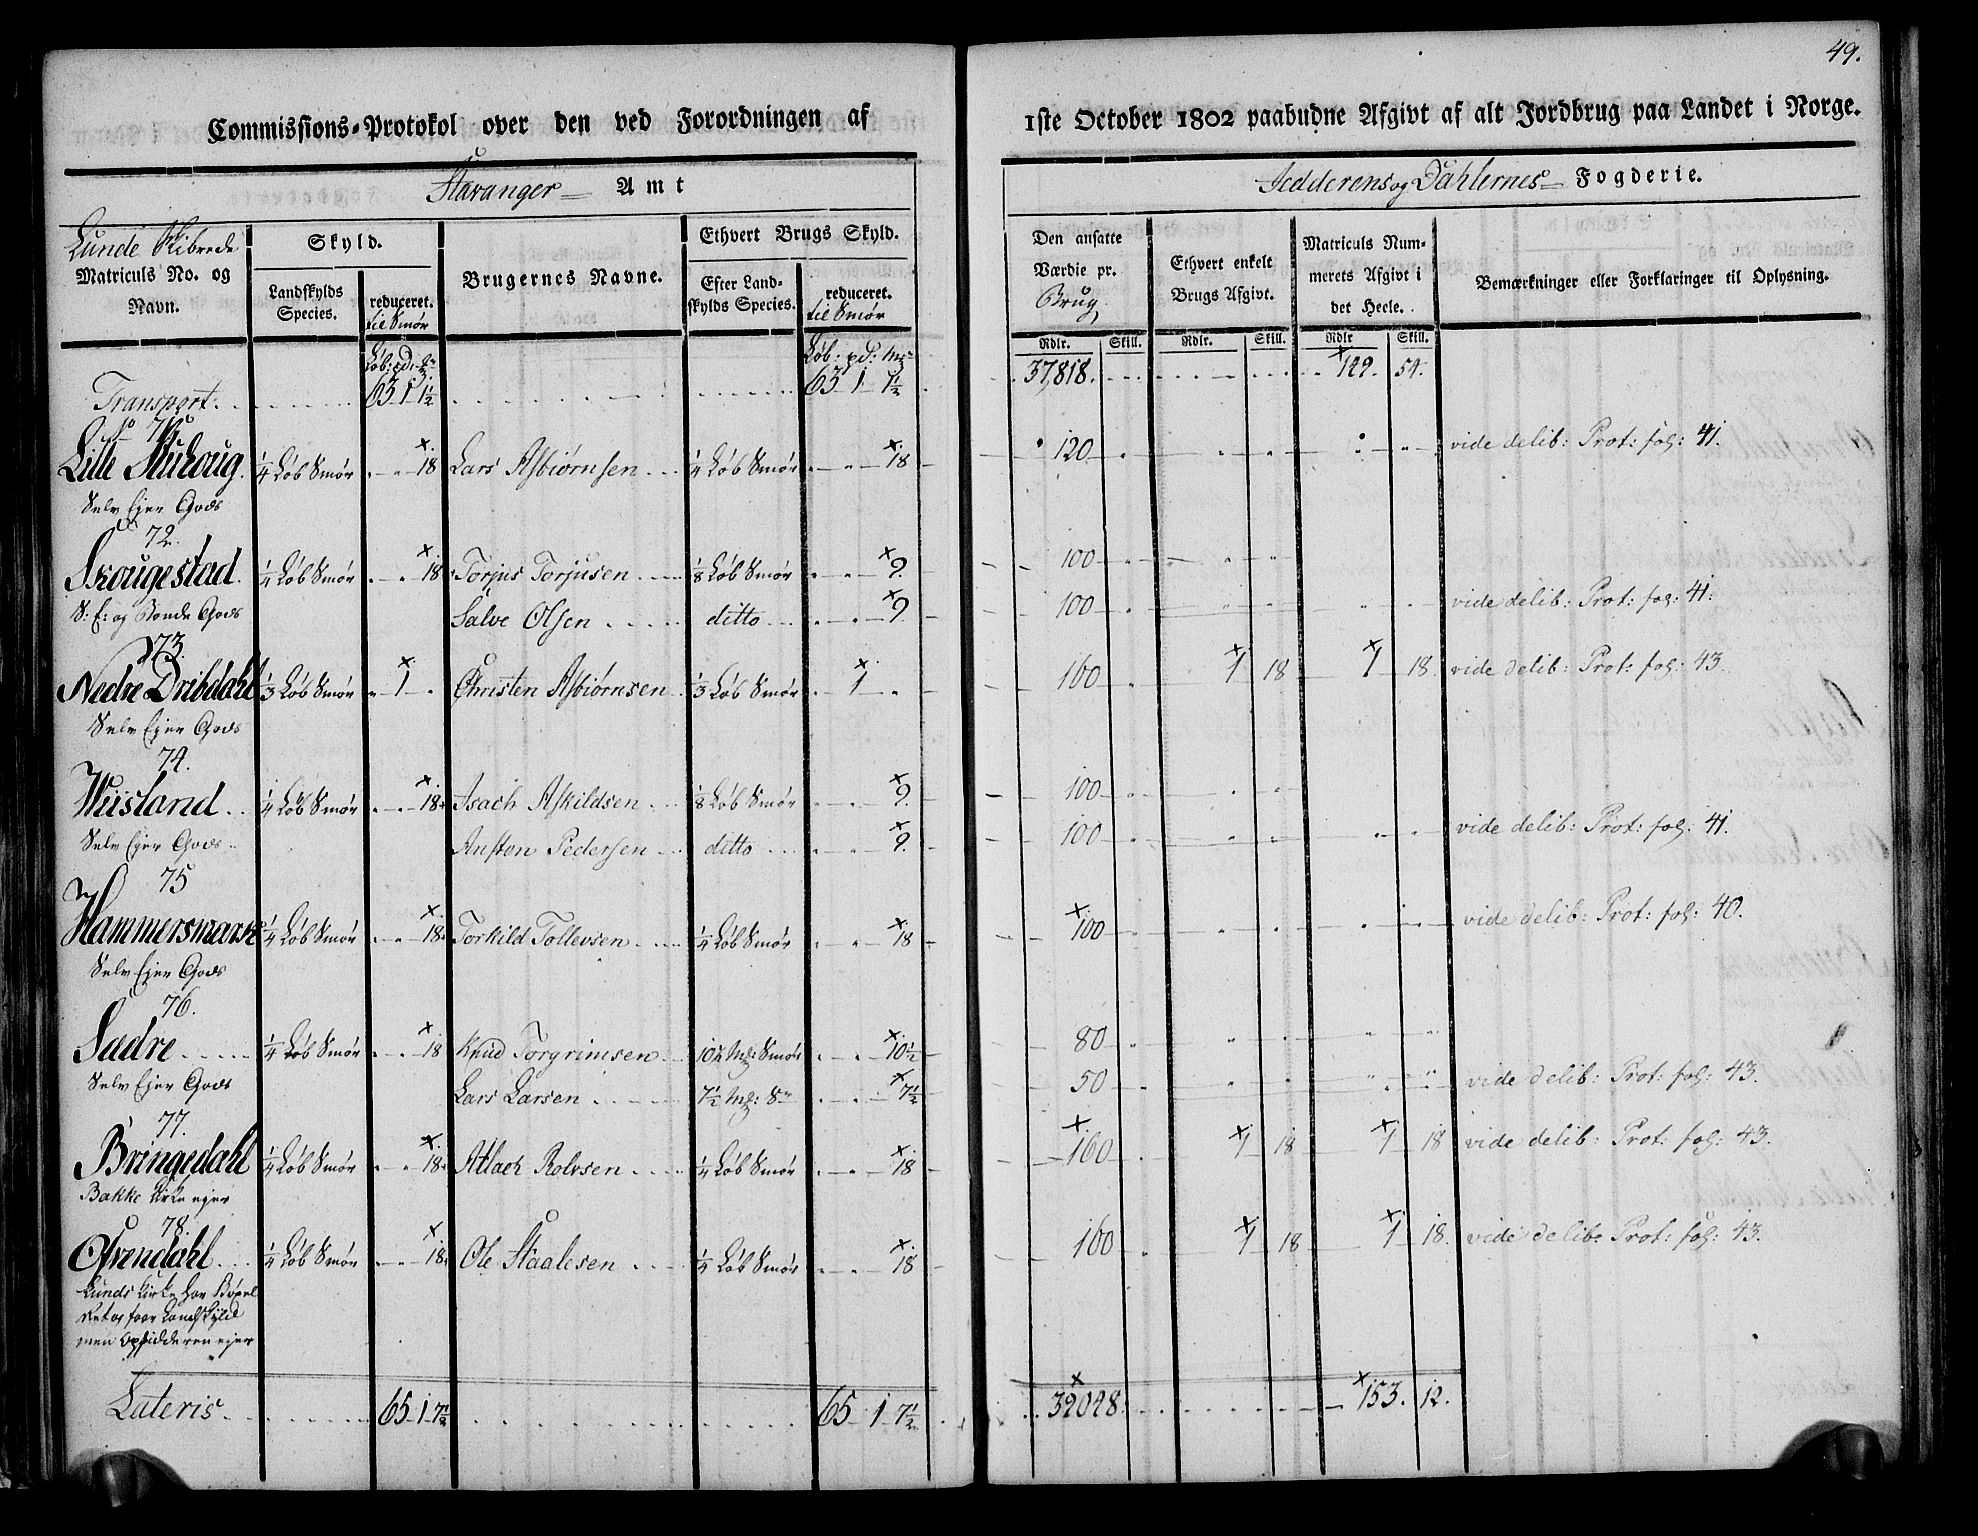 49.
Commissions-Protokol over den ved Forordningen af 1ste October 1802 paabudne Afgivt af alt Jordbrug paa Landet i Norge.
Stavanger Amt
Jedderens og Dahlernes Fogderie.
Lunde Skibrede
Matriculs No. og Navn.
Skyld.
Landskylds Species.
reduceret. til Smør
Brugernes Navne.
Ethvert Brugs Skyld.
Efter Landskylds Species.
reduceret. til Smør
Den ansatte Værdie pr. Brug
Ethvert enkelt Brugs Afgivt.
Matriculs Nummerets Afgivt i det Heele.
Bemærkninger eller Forklaringer til Oplysning.
Rdlr. Skill. Rdlr. Skill. Rdlr Skill.
Løb: pd: Løb: pd: mrk
Transport 63 1 1½ 63 1 1½ 37,818. 149. 54.
No 71
Lille Skuloug ¼ Løb Smør 18 Lars Asbiørnsen ¼ Løb Smør 18 120 vide delib: Prot: fol: 41.
Selv Ejer Gods
72.
Skougestad ¼ Løb Smør 18 Torjus Torjusen ⅛ Løb Smør 9. 100
S: E: og Bonde Gods Salve Olsen ditto 9. 100 vide delib: Prot: fol: 41.
73.
Nedre Dribdahl ⅓ Løb Smør 1 Christen Asbiørnsen ⅓ Løb Smør 1 160 1 18 1 18 vide delib: Prot: fol: 43.
Selv Ejer Gods
74.
Wiisland ¼ Løb Smør 18 Isach Askildsen ⅛ Løb Smør 9. 100
Selv Ejer Gods Ansten Pedersen ditto 9. 100 vide delib: Prot: fol: 41.
75
Hammersmark ¼ Løb Smør 18 Torkild Tollevsen ¼ Løb Smør 18 100 vide delib: Prot: fol: 40.
Selv Ejer Gods
76.
Sædre ¼ Løb Smør 18 Knud Torgrimsen 10½ Mk: Smør 10½ 80
Selv Ejer Gods Lars Larsen 7½ Mk: Sr 7½ 50 vide delib: Prot: fol: 43.
77.
Bringedahl ¼ Løb Smør 18 Atlach Rolvsen ¼ Løb Smør 18 160 1 18 1 18 vide delib: Prot: fol: 43.
Bakke Kirke ejer
78.
Øvrendahl ¼ Løb Smør 18 Ole Staalesen ¼ Løb Smør 18 160 1 18 1 18. vide delib: Prot: fol: 43.
Lunds Kirke har Bøxel
Ret og faar Landskyld
men Opsidderen ejer
Lateris 65 1 7½ 65 1 7½ 39048. 153. 12.